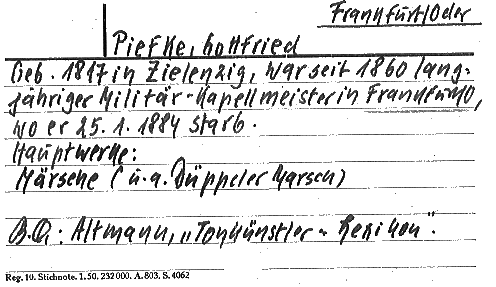 Frankfurt/Oder
Piefke, Gottfried
Geb. 1817 in Zielenzig, war seit 1860 lang-
jähriger Militär-Kapellmeister in Frankfurt/O,
wo er 25. 1. 1884 starb.
Hauptwerke:
Märsche (u.a. Düppeler Marsch)
B.Q.: Altmann, „Tonkünstler-Lexikon".
Reg. 19. Stichnote. 1. 50. 232000. A. 803. S. 4062